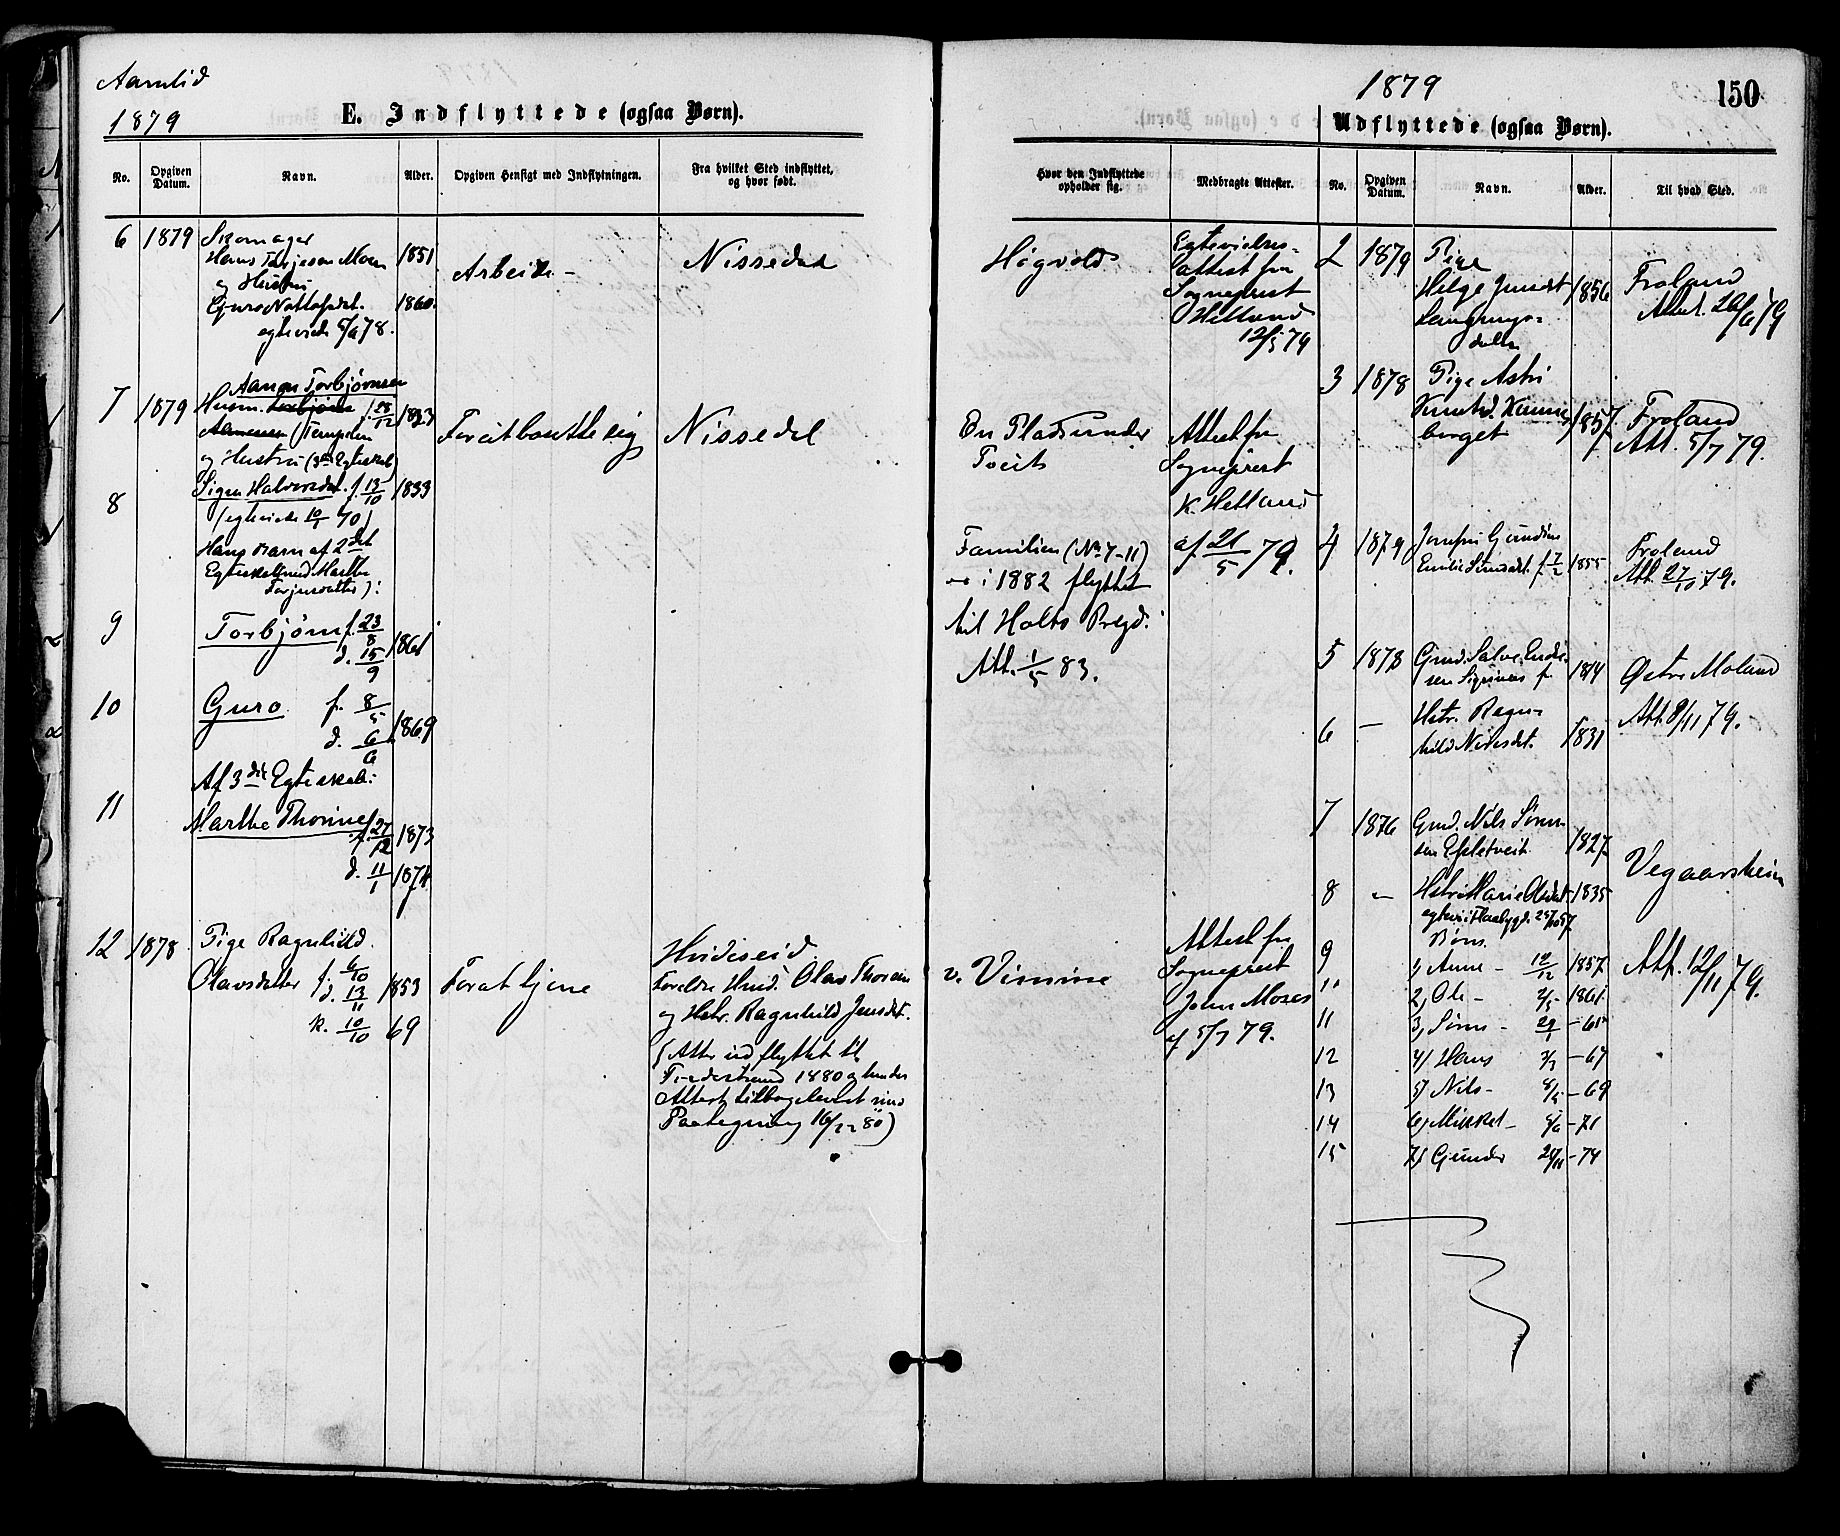 Aamlid
1879
E. Indflyttede (ogsaa Børn).
No.
Opgiven Datum.
Navn.
Alder.
Opgiven Hensigt med Indflytningen.
Fra hvilket Sted indflyttet, og hvor født.
6 1879 Skomager
Hans Tarjesen Moen 1851
og Hustru
Guro Nottolfsdt. 1860
egteviede 78.
Arbeide -
Nissedal
Aanon Torbjørnsen
7 1879 Husm. Torbjørn f. 18/12 1823
Aanonsen (Tempelen
og Hustru (3die Egteskab)
8 Signe Halvorsdt. f. 13/10 1833
(egteviede 70)
Hans Barn af 2det
Egteskab med Marthe
Tarjesdatter):
For at bosætte sig
Nissedal
9 Torbjørn f. 23/8 1861
d. 15/9
10 Guro f. 8/5 1869
d. 6/6
Af 3die Egteskab:
11 Marthe Thorine
f. 27/12 1873
d. 11/1 1874
12 1878 Pige Ragnhild
Olavsdatter f. 6/10 1853
d. 13/11
k. 10/10 69
For at tjene
Hvideseid
Foreldre Husmd. Olav Thorsen
og Hstr. Ragnhild Jensdt.
(Atter udflyttet til
Tvedestrand 1880 og hendes
Attest tilbageleveret med
Paategning 16/12 80)
1879
150
Udflyttede (ogsaa Børn).
Hvor den Indflyttede opholder sig.
Medbragte Attester.
No.
Opgiven Datum.
Navn.
Alder.
Til hvad Sted.
Høgvold
Egtevielses-
attest fra
Sogneprest
Hetland
12/5 79
En Plads under
Tveit
Attest fra
Sogneprest
K. Hetland
af 21/5 79.
Familien (No 7-11)
i 1882 flyttet
til Holts Pregd.
Att. 1/5 83.
v. Vimme
Attest fra
Sogneprest
John Moses
af 5/7 79.
2 1879 Pige
Helge 1856
Froland
Attest. 20/6 79
3 1878 Pige Astri
Knutsd. 1857
berget
Froland
Att. 5/7 79.
4 1879 Jomfru Gundine
Emilie f. 7/2 1855
Froland
Att. 27/10 79.
5 1878 Gmd. Salve Endre-
sen 1814
Østre Moland
6 - Hstr. Ragn-
hild Nilsdt. 1831
Att. 8/11 79.
7 1876 Gmd. Nils Søren-
sen Espletveit 1827
8 - Hstr Marie Olsdat 1835
Vegaarsheien
Børn.
9 1) Anne - 12/12 1857
Att. 12/11 79.
11 2) Ole - 2/5 1861
11 3) Søren - 29/1 - 65
12 4) Hans 3/3 - 67
13 5) Nils - 8/5 - 69
14 6) Mikkel - 5/6 - 71
15 7) Gunder 28/11 - 74